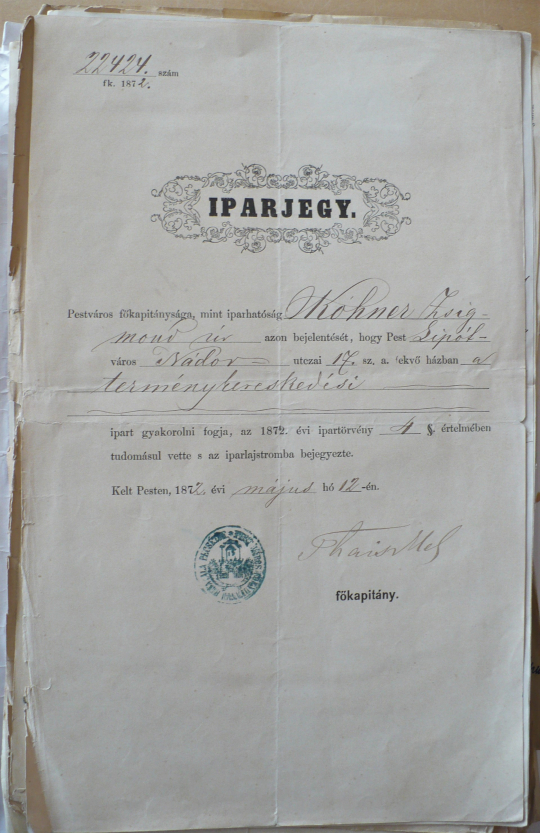 22424. szám
fk. 1872.
IPARJEGY.
Pestváros főkapitánysága, mint iparhatóság Kohner Zsig-
mond úr azon bejelentését, hogy Pest Lipót-
város Nádor utczai 17. sz. a. fekvő házban a
terménykereskedési
ipart gyakorolni fogja, az 1872. évi ipartörvény 4 §. értelmében
tudomásul vette s az iparlajstromba bejegyezte.
Kelt Pesten, 1872. évi május hó 12-én.
főkapitány.